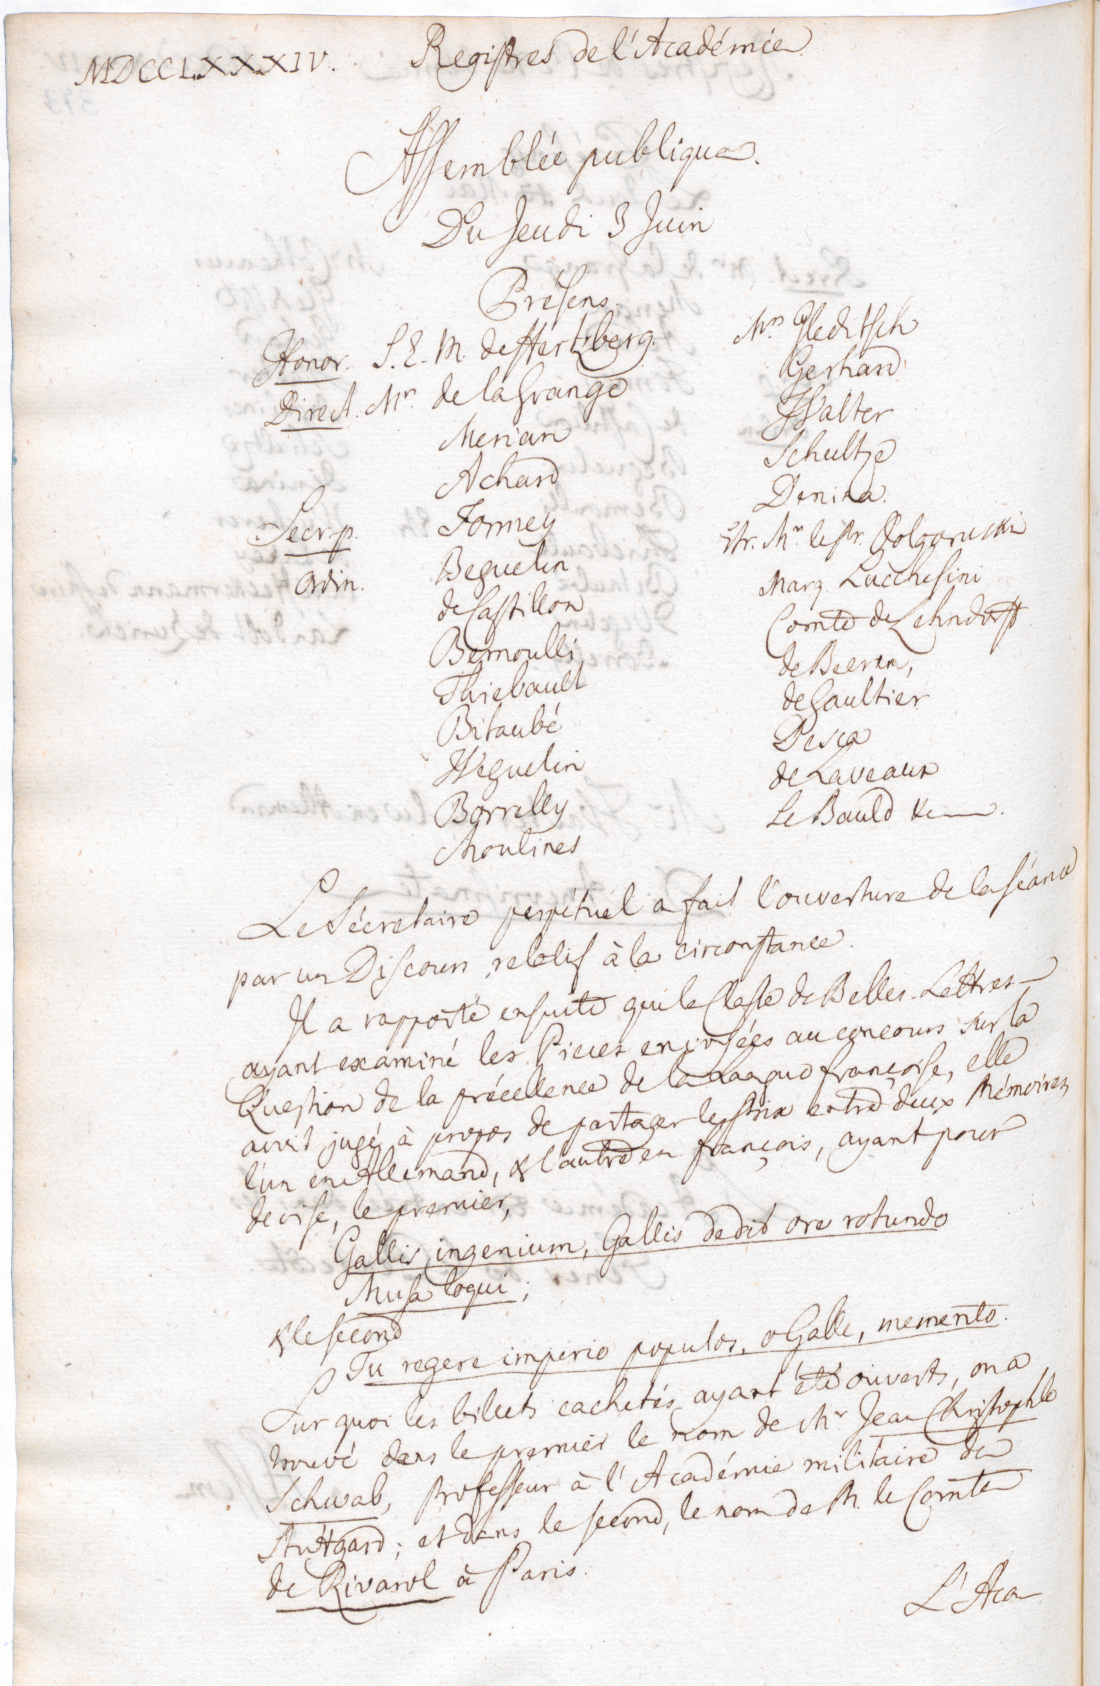 MDCCLXXXIV.
Registres de l'Académie
Assemblée publique.
Du Jeudi 3 Juin
Présens.
Honor. S. E. M. de Hertzberg.
Direct. Mr. de la Grange
Merian
Achard
Secr. p. Formey
Ordin. Beguelin
de Castillon
Bernoulli
Thiebault
Bitaubé
Weguelin
Borrelly
Moulines
Mrs Gleditsch
Gerhard
Walter
Schultze
Denina.
Etr. Mr. le Pr. Dolgorucki
Marq. Lucchesini
Comte de Lehndorff
de Beeren,
de Gaultier
Pesca
de Laveaux
Le Bauld &c.
Le Sécretaire perpétuel a fait l'ouverture de la séance
par un Discours relatif à la circonstance.
Il a rapporté ensuite que la Classe de Belles-Lettres
ayant examiné les Pieces envoyées au concours sur la
Question de la précellence de la Langue françoise, elle
avoit jugé à propos de partager le Prix entre deux Mémoires,
l'un en Allemand, & l'autre en françois, ayant pour
devise, le premier,
Gallis ingenium, Gallis dedit ore rotundo
Musa loqui;
& le second
Tu regere imperio populos, o Galle, memento.
Sur quoi les billets cachetés ayant été ouverts, on a
trouvé dans le premier le nom de Mr Jean Christophle
Schwab, Professeur à l'Académie militaire de
Stuttgard; et dans le second, le nom de M. le Comte
de Rivarol à Paris.
L'Aca